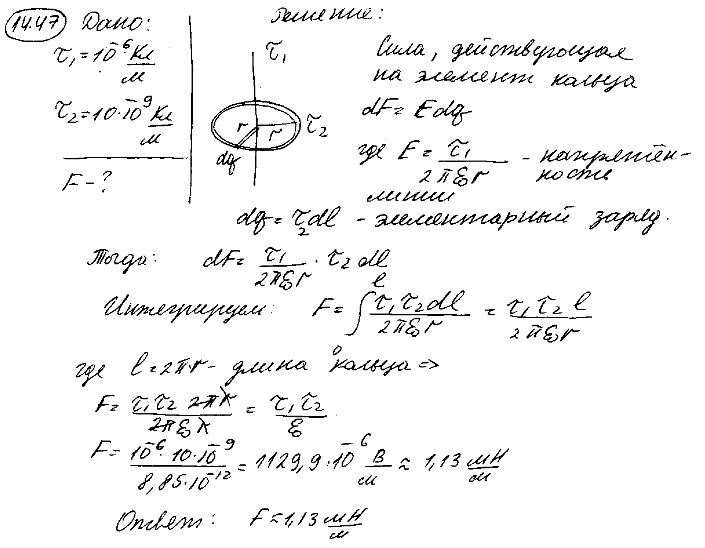 14.47 Дано: Решение:
τ₁ = 10⁻⁶ Кл/м
τ₂ = 10·10⁻⁹ Кл/м
F - ?
τ₁
r r τ₂
dq
Сила, действующая
на элемент кольца
dF = E dq
где E = τ₁/(2πε₀r) - напряжён-
ность
линии
dq = τ₂dl - элементарный заряд.
Тогда: dF = τ₁/(2πε₀r) · τ₂ dl
Интегрируем: F = ∫₀ˡ τ₁τ₂dl/(2πε₀r) = τ₁τ₂ l/(2πε₀r)
где l = 2πr - длина кольца ⇒
F = τ₁τ₂ 2πr/(2πε₀r) = τ₁τ₂/ε₀
F = 10⁻⁶·10·10⁻⁹/(8,85·10⁻¹²) = 1129,9·10⁻⁶ В/м ≈ 1,13 мН/м
Ответ: F = 1,13 мН/м